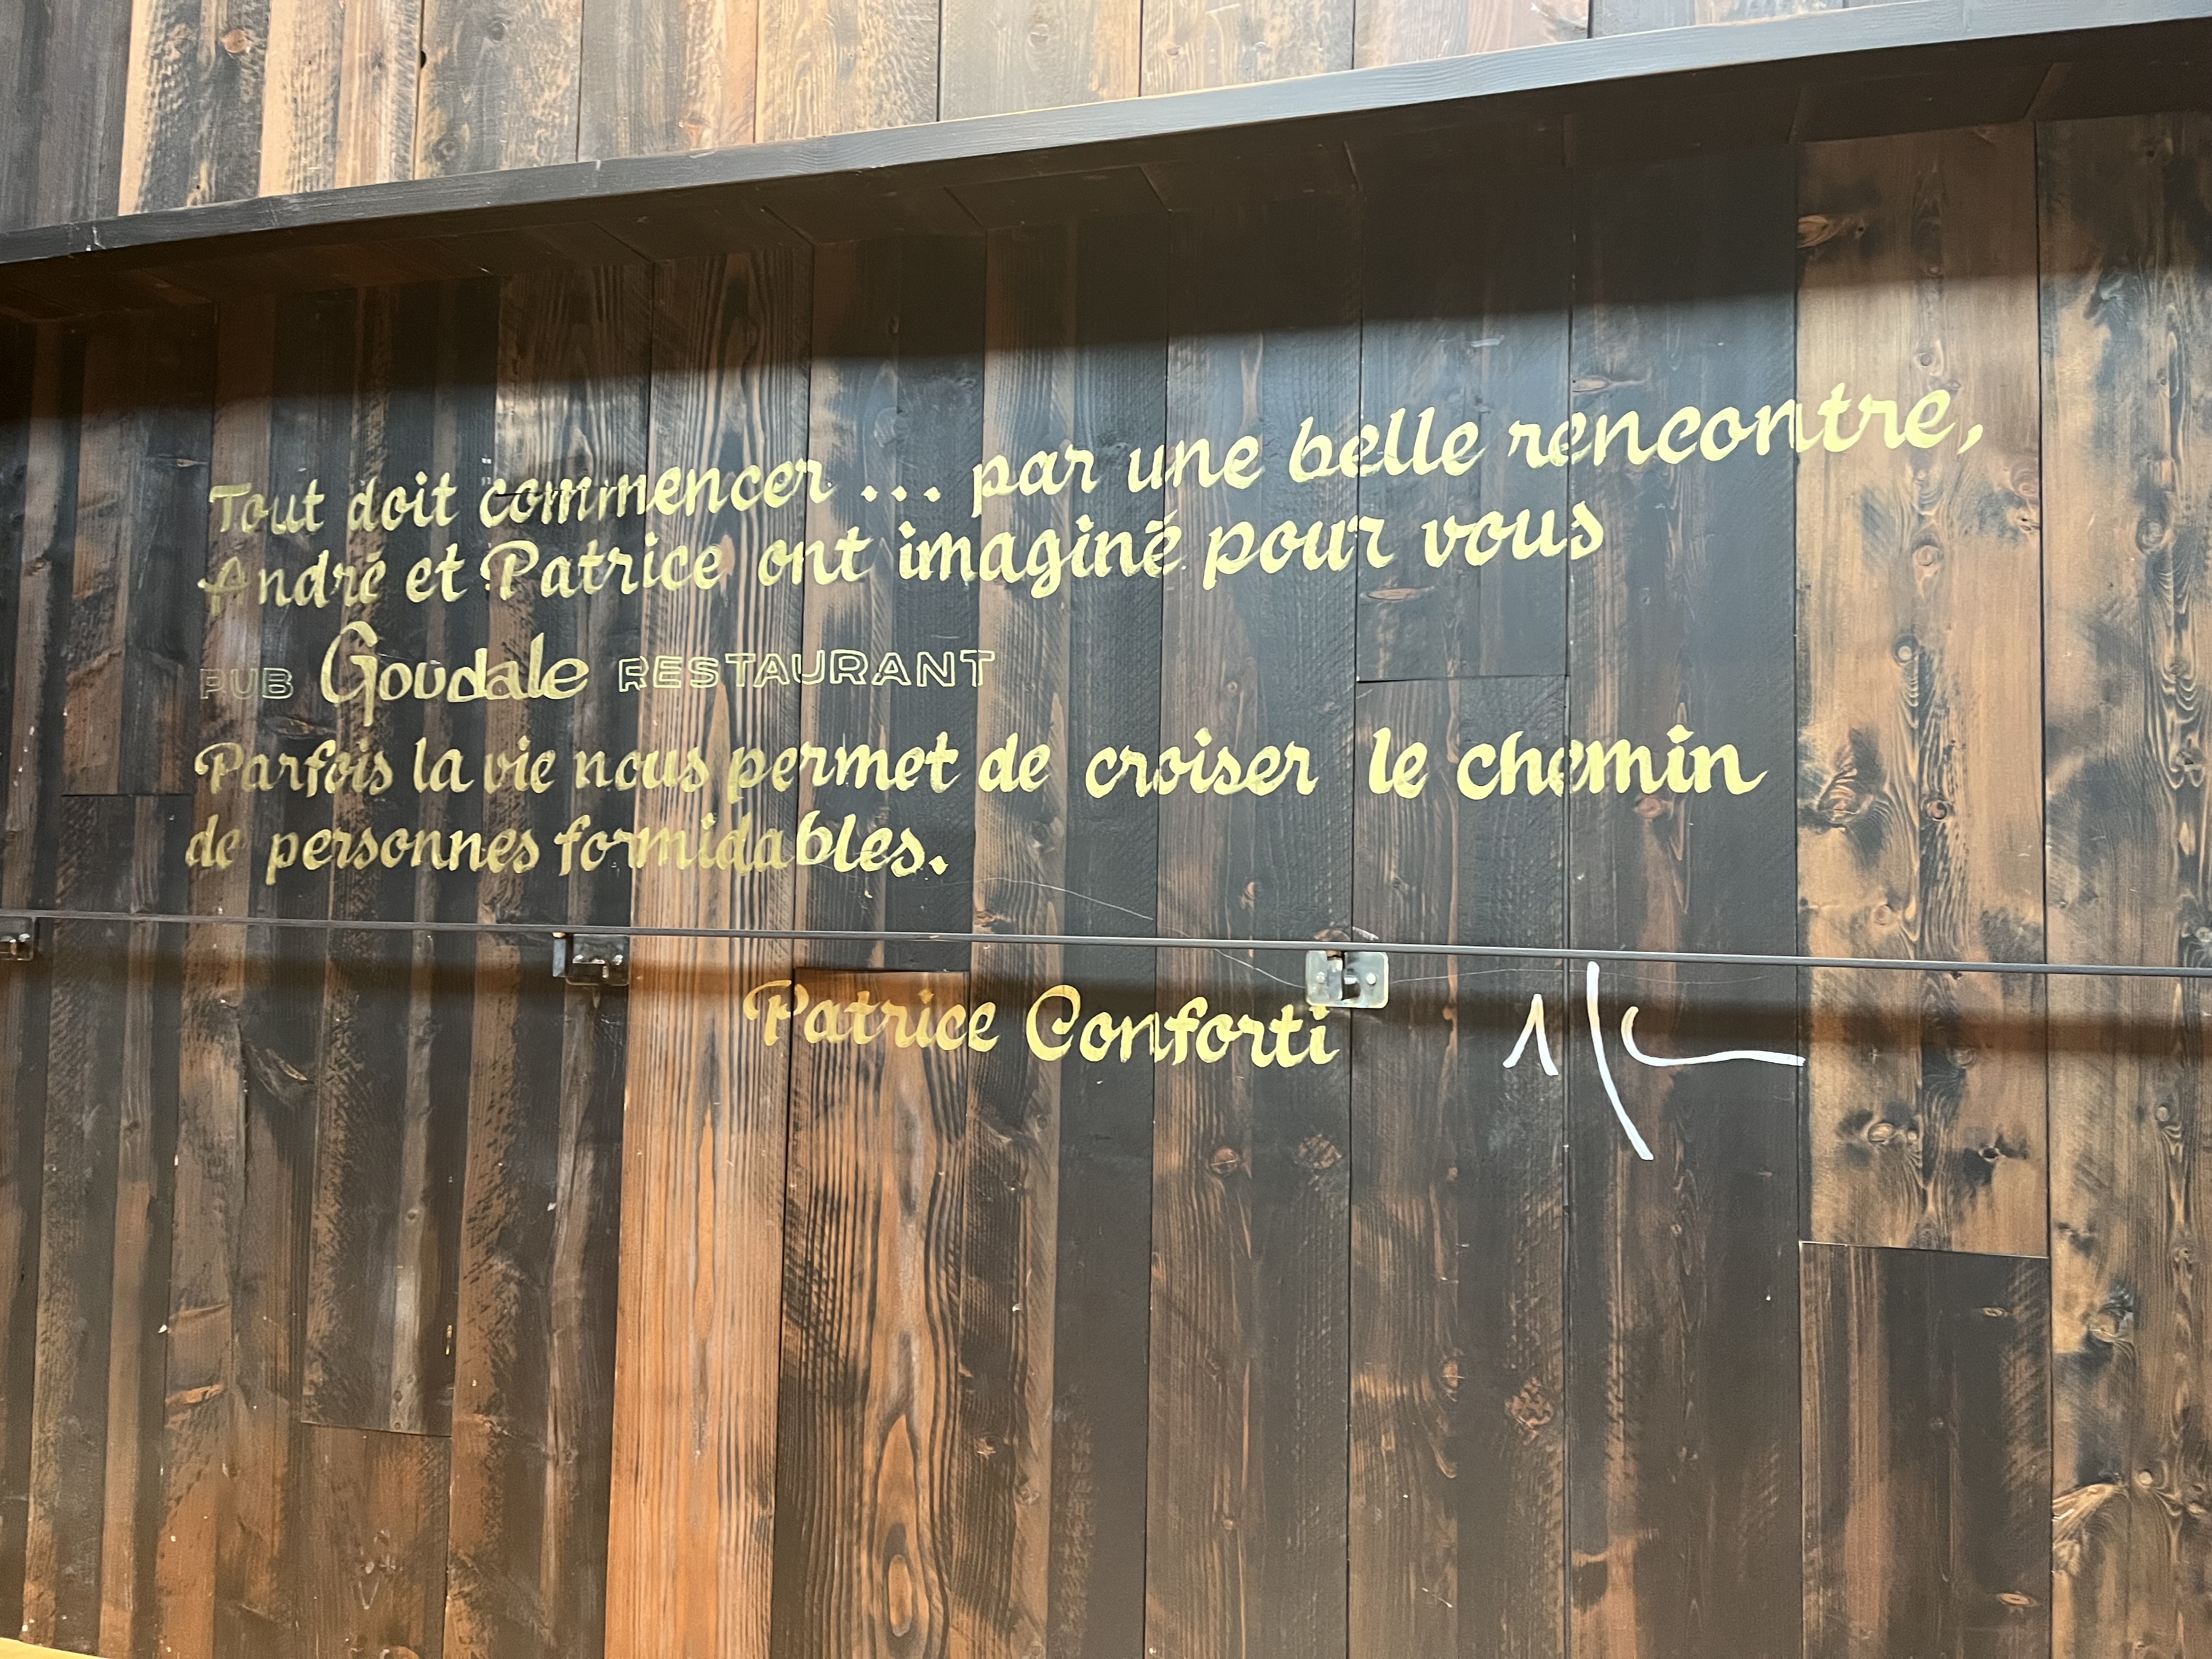 Tout doit commencer ... par une belle rencontre,
André et Patrice ont imaginé pour vous
PUB Goudale RESTAURANT
Parfois la vie nous permet de croiser le chemin
de personnes formidables.
Patrice Conforti